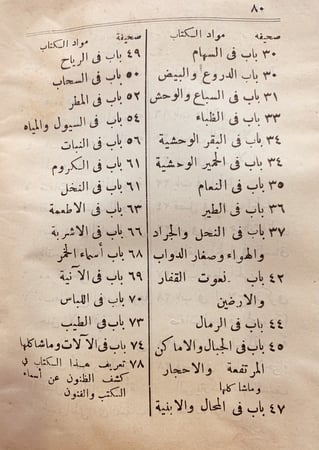 ٨٠
صحيفه مواد الكتاب
٣٠ باب فى السهام
٣٠ باب فى الدروع والبيض
٣١ باب فى السباع والوحش
٣٣ باب فى الظباء
٣٤ باب فى البقر الوحشية
٣٤ باب فى الحمير الوحشية
٣٥ باب فى النعام
٣٦ باب فى الطير
٣٧ باب فى النحل والجراد
والهواء وصغار الدواب
٤٢ باب نعوت القفار
والارضين
٤٤ باب فى الرمال
٤٥ باب فى الجبال والاماكن
المرتفعة والاحجار
وماشاكلها
٤٧ باب فى المحال والابنية
صحيفة مواد الكتاب
٤٩ باب فى الرياح
٥٠ باب فى السحاب
٥٢ باب فى المطر
٥٤ باب فى السيول والمياه
٥٦ باب فى النبات
٦١ باب فى الكروم
٦١ باب فى النخل
٦٣ باب فى الاطعمة
٦٦ باب فى الاشربة
٦٨ باب أسماء الخمر
٦٩ باب فى الآنية
٧٠ باب فى اللباس
٧٣ باب فى الطيب
٧٤ باب فى الآلات وماشاكلها
٧٨ تعريف هذا الكتاب فى
كشف الظنون عن أسماء
الكتب والفنون